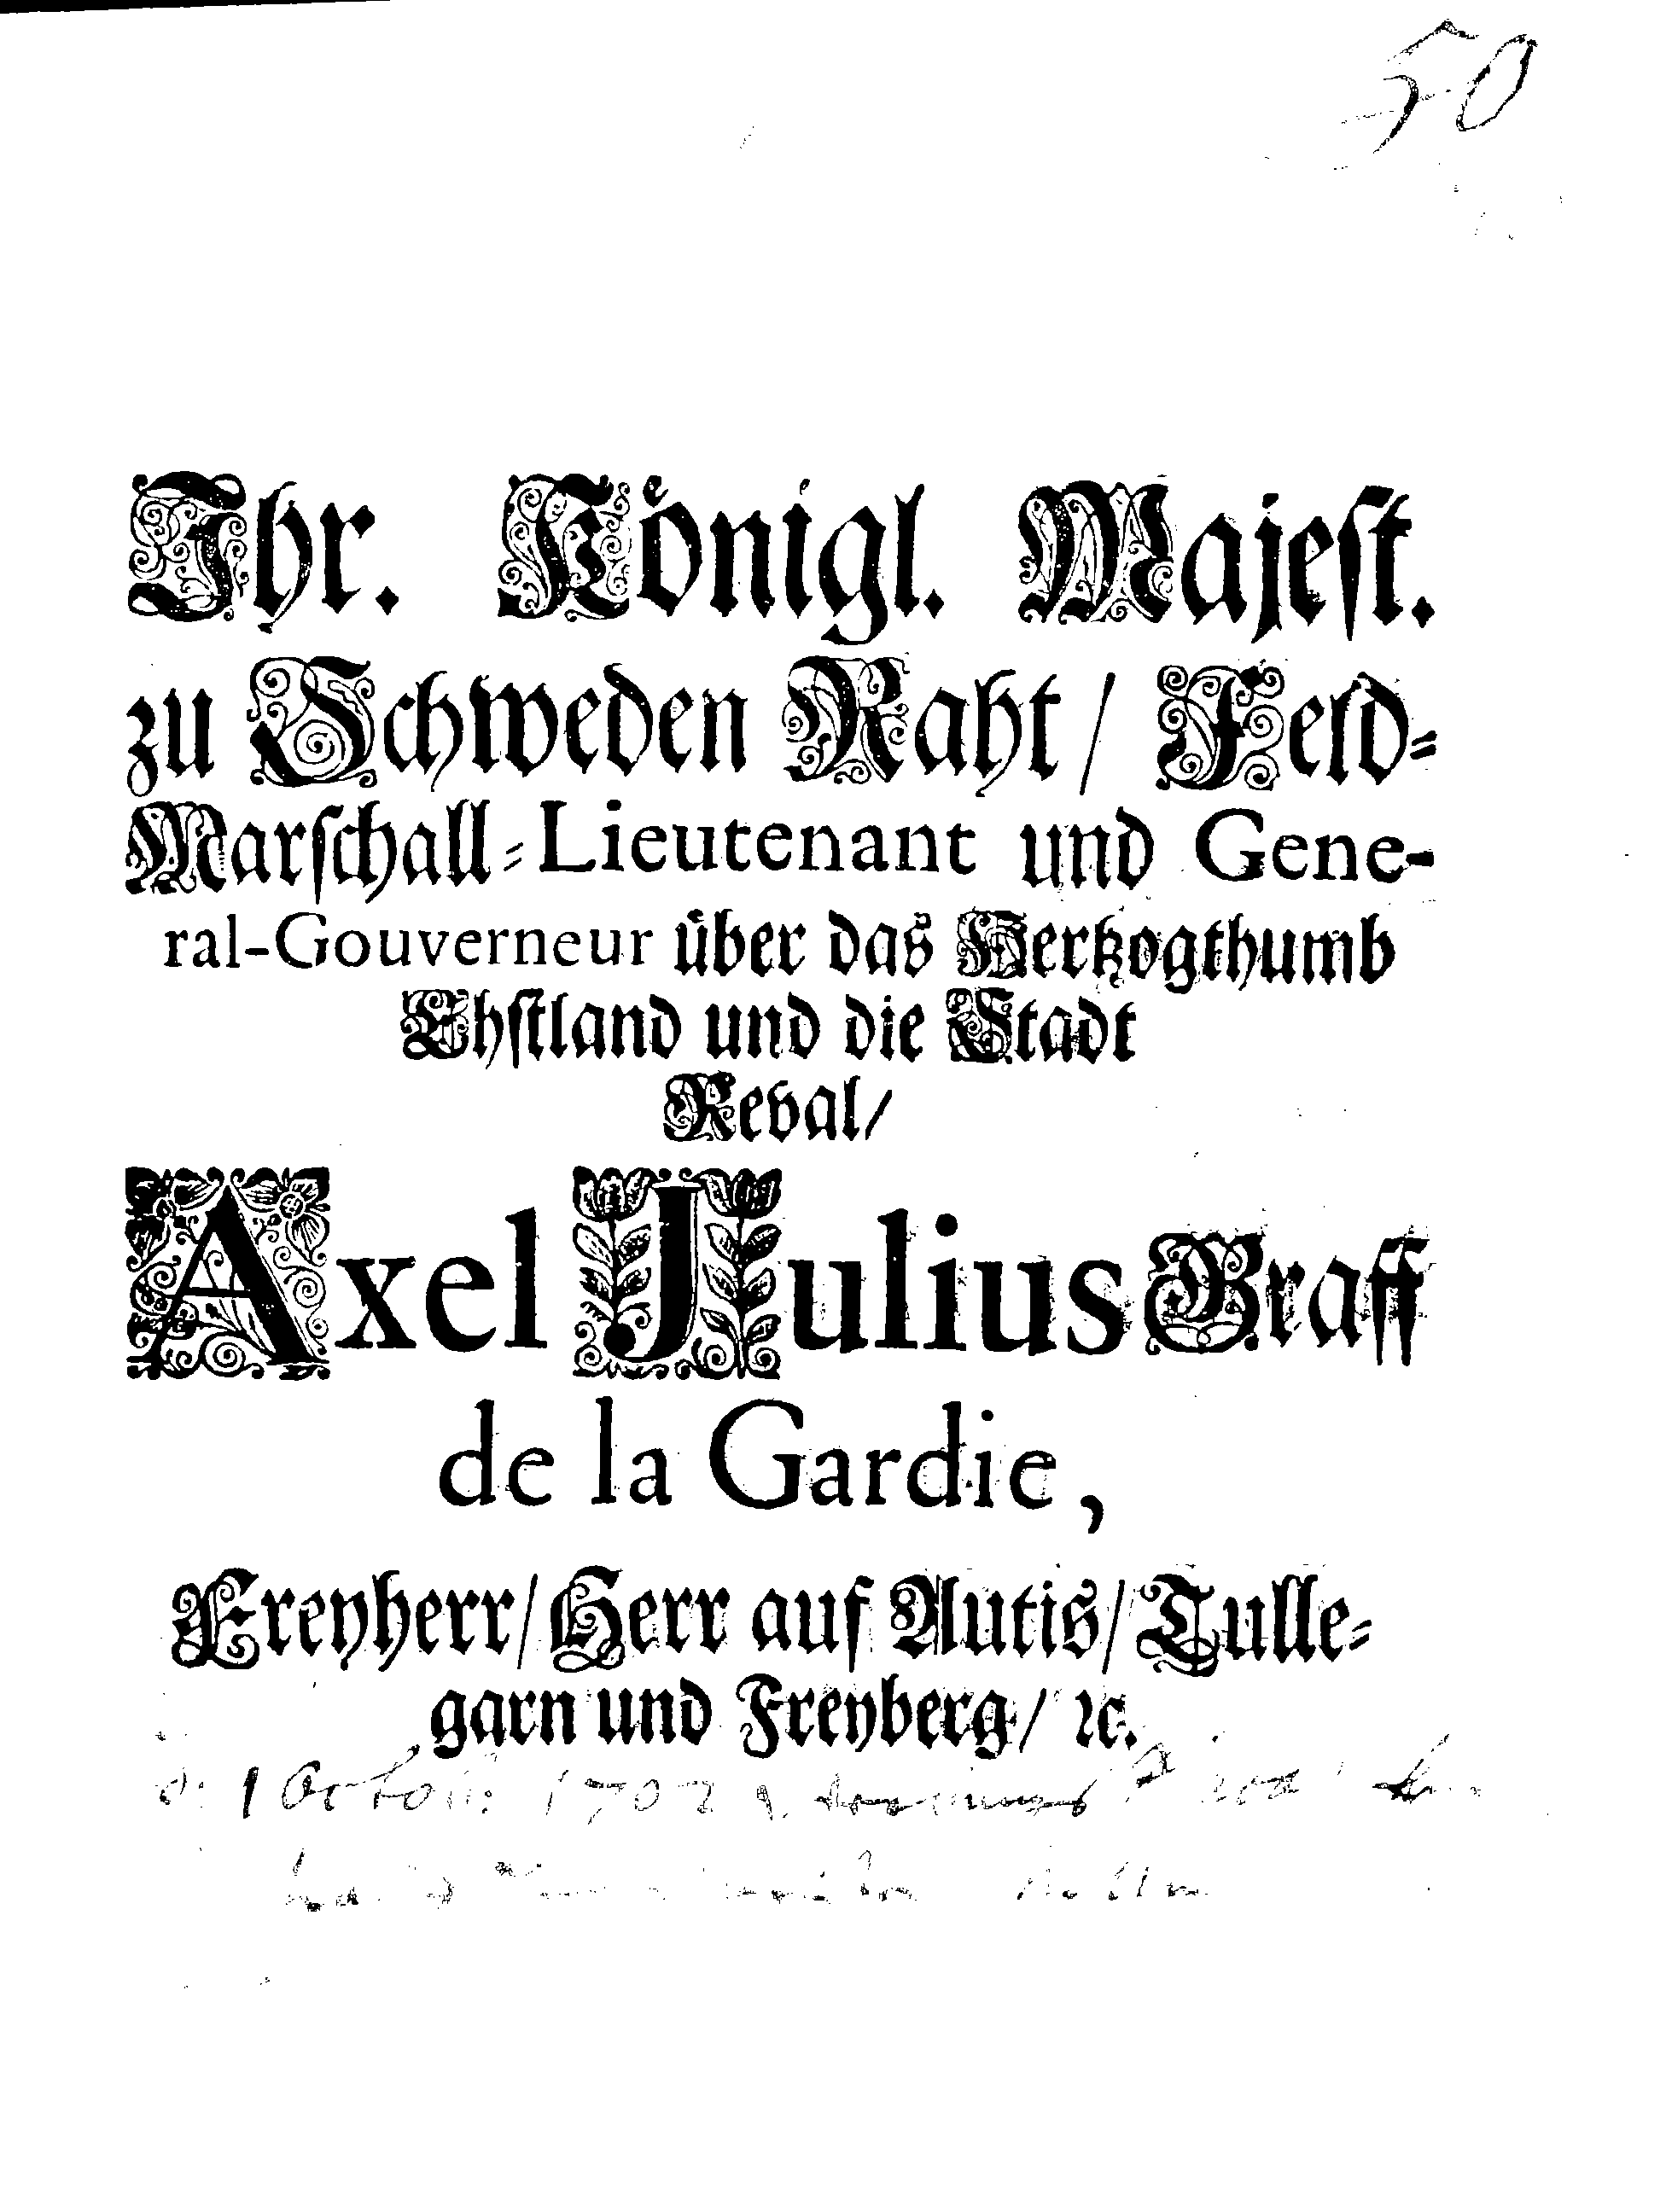 50
Ihr. Königl. Majest.
zu Schweden Raht / Feld-
Marschall-Lieutenant und Gene-
ral-Gouverneur über das Hertzogthumb
Ehstland und die Stadt
Reval /
Axel Julius Graff
de la Gardie,
Freyherr / Herr auf Autis / Tulle-
garn und Freyberg / ꝛc.
1 Octob: 1702